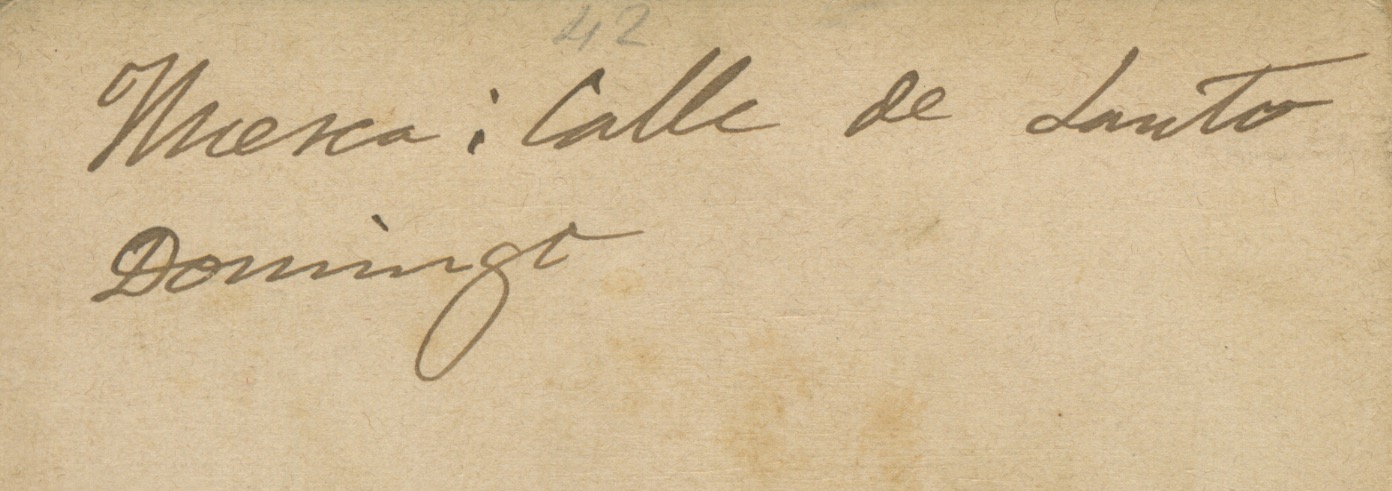 42
Huesca: Calle de Santo
Domingo